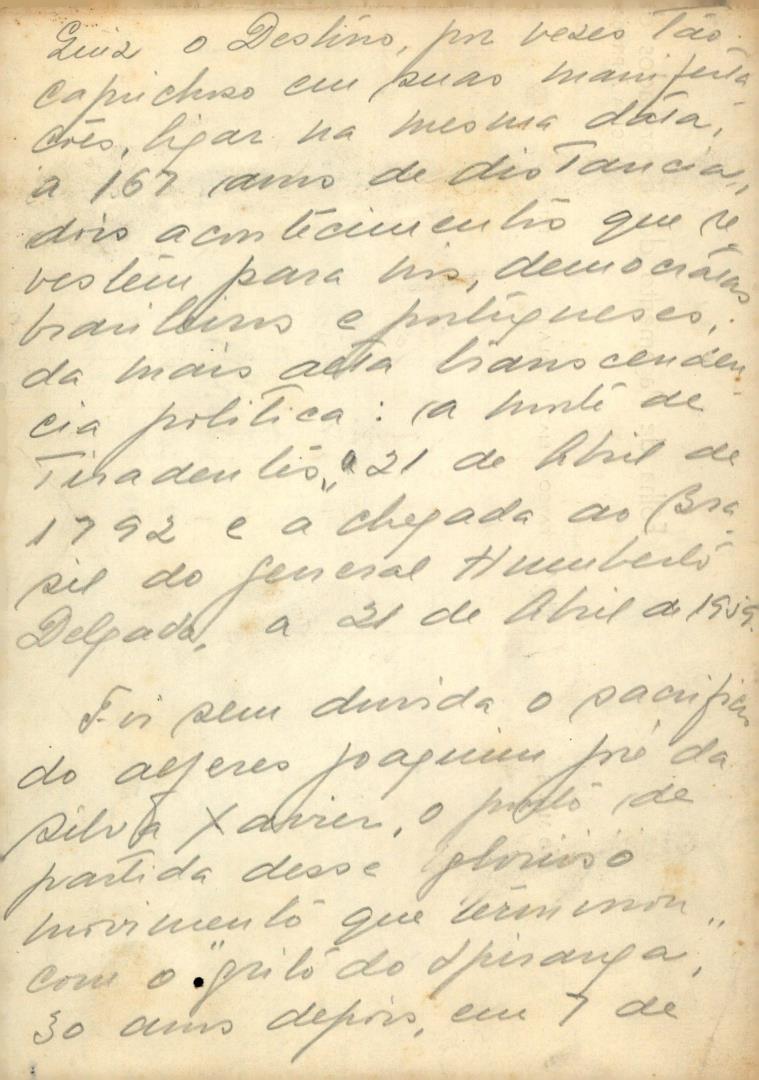 Quiz o Destino, por vezes tão
caprichoso em suas manifesta
ções, ligar na mesma data,
a 167 anos de distancia,
dois acontecimentos que re
vestem para nós, democratas
brasileiros e portugueses,
da mais alta transcendên
cia politica: a morte de
Tiradentes, a 21 de Abril de
1792 e a chegada ao Bra
sil do General Humberto
Delgado, a 21 de Abril de 1959.
Foi sem duvida o sacrificio
do alferes Joaquim José da
Silva Xavier, o ponto de
partida desse glorioso
movimento que terminou
com o "grito do Ipiranga",
30 anos depois, em 7 de